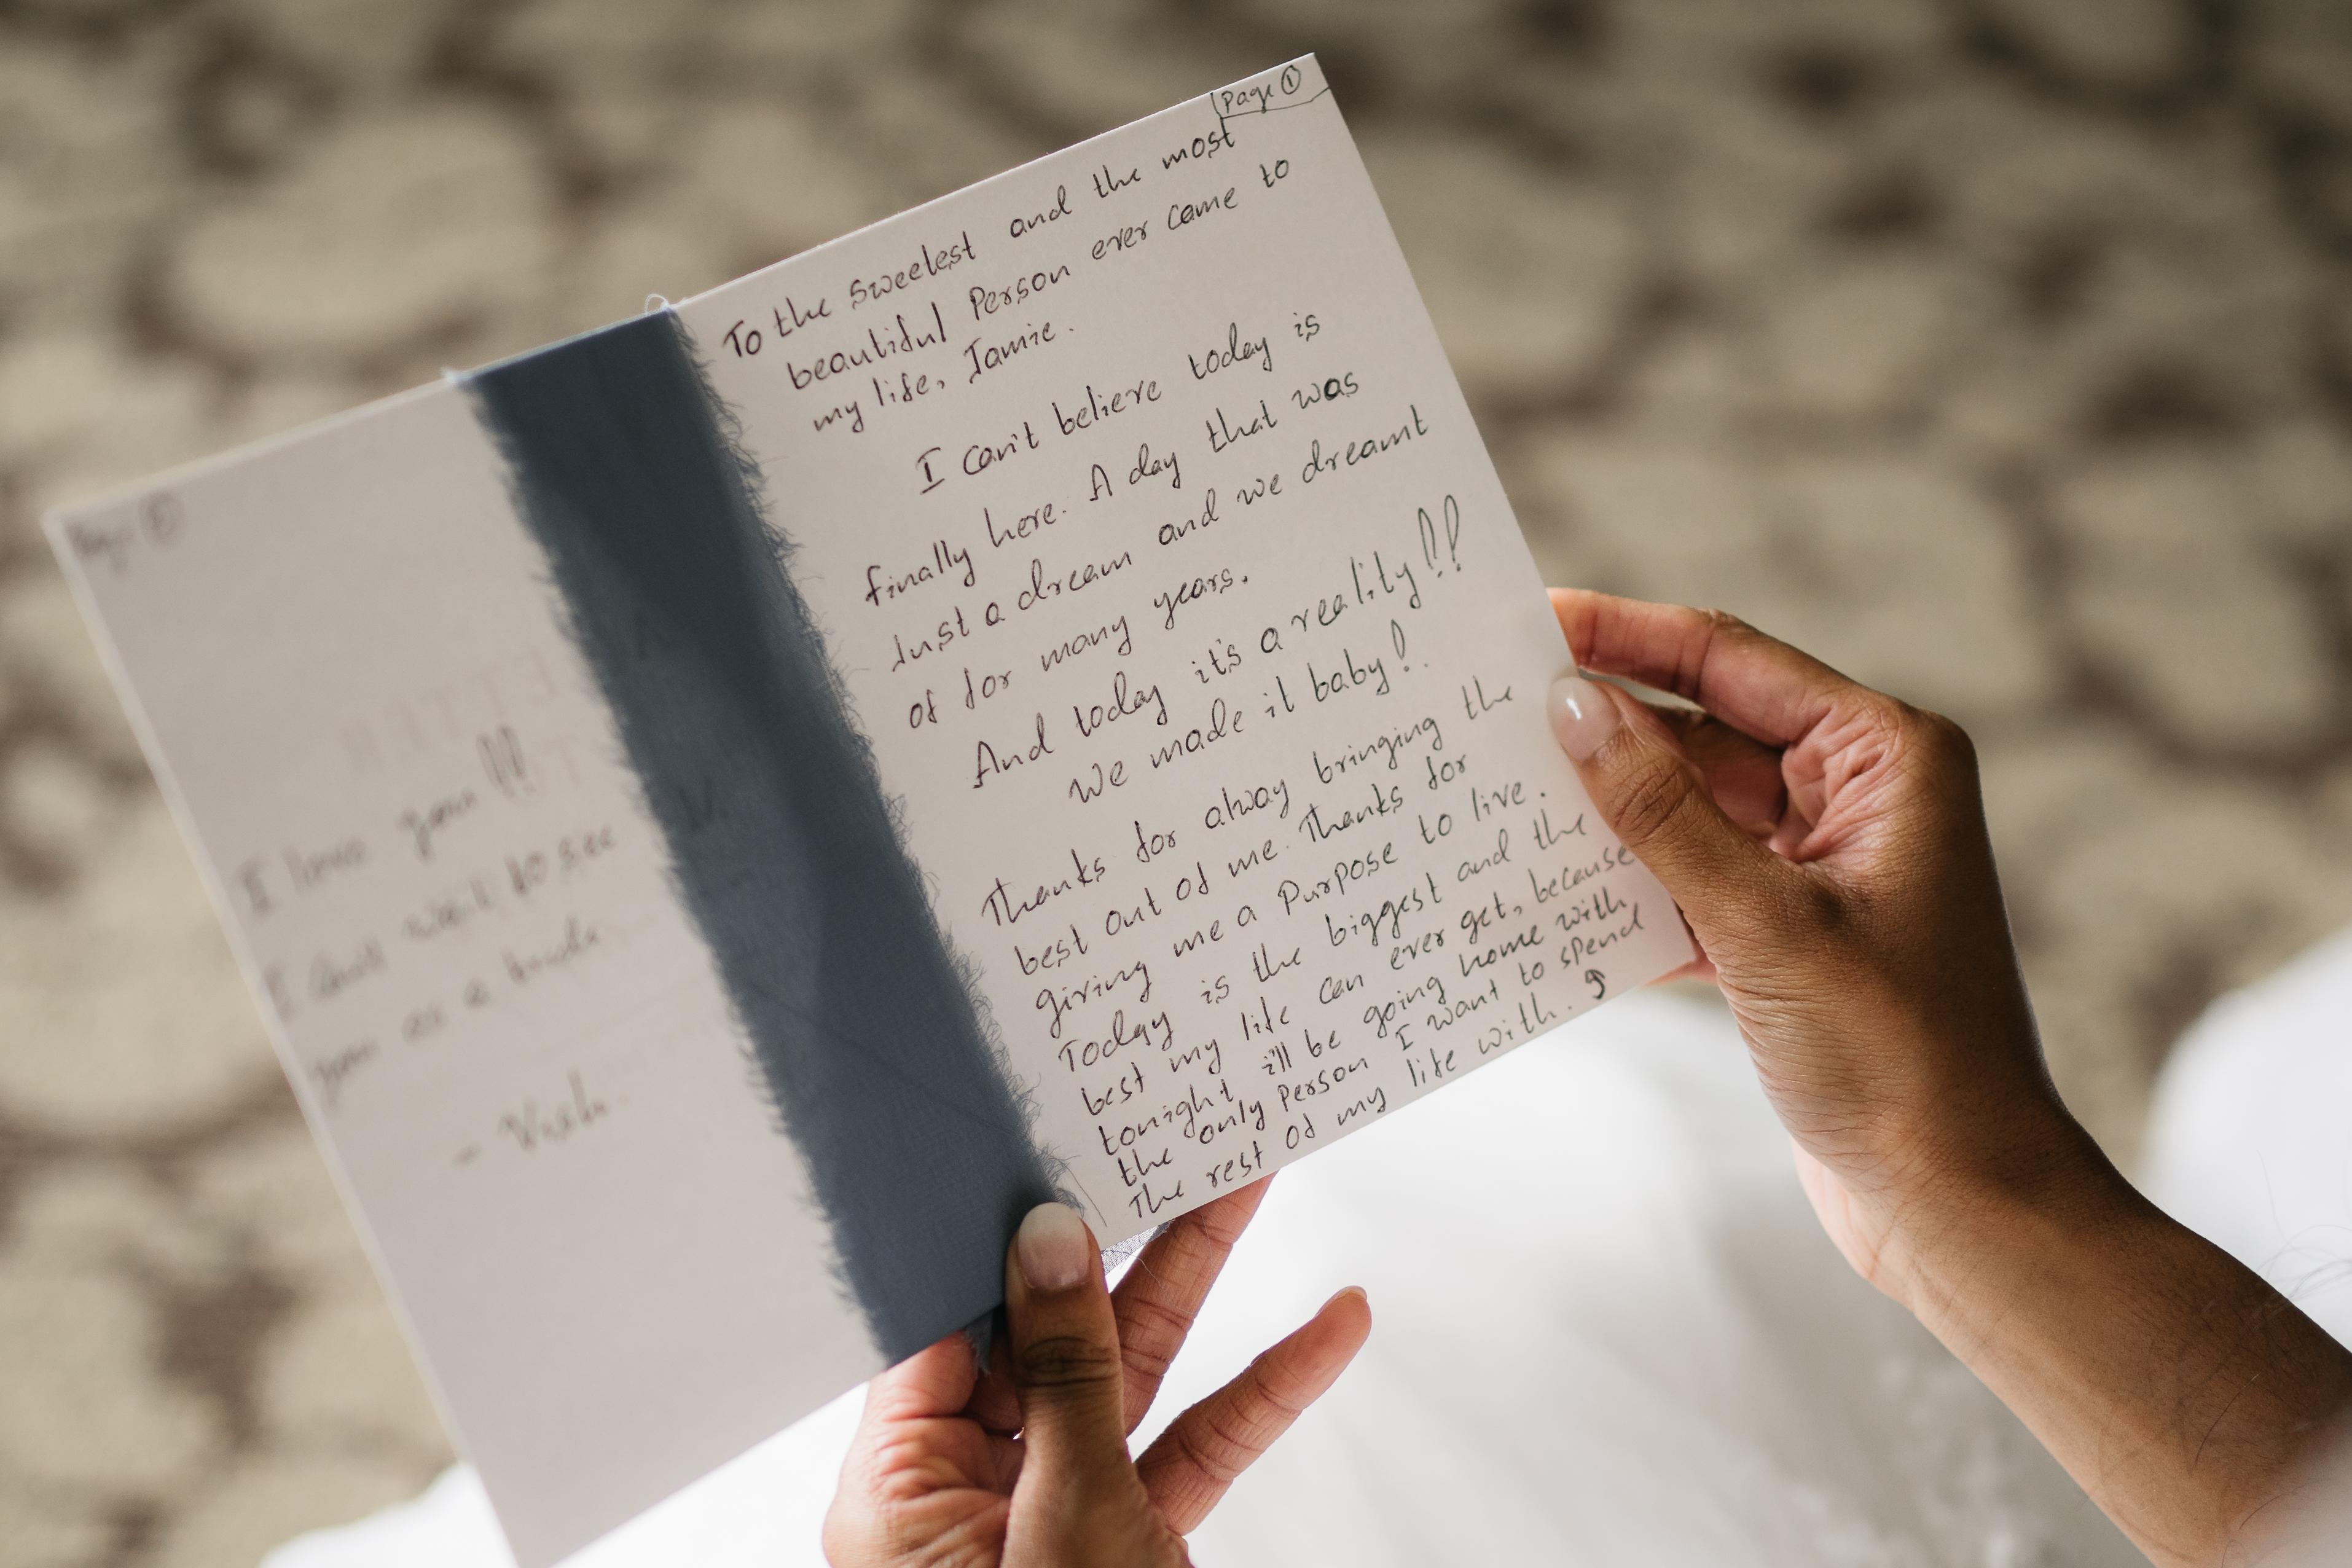 Page ①
To the sweetest and the most
beautiful Person ever came to
my life, Jamie.
I can't believe today is
finally here. A day that was
Just a dream and we dreamt
of for many years.
And today it's a reality!!
We made it baby!
Thanks for alway bringing the
best out of me. Thanks for
giving me a Purpose to live.
Today is the biggest and the
best my life can ever get, because
tonight i'll be going home with
the only Person I want to spend
The rest of my life with.
Page
I love you!!
I can't wait to see
you as a bride